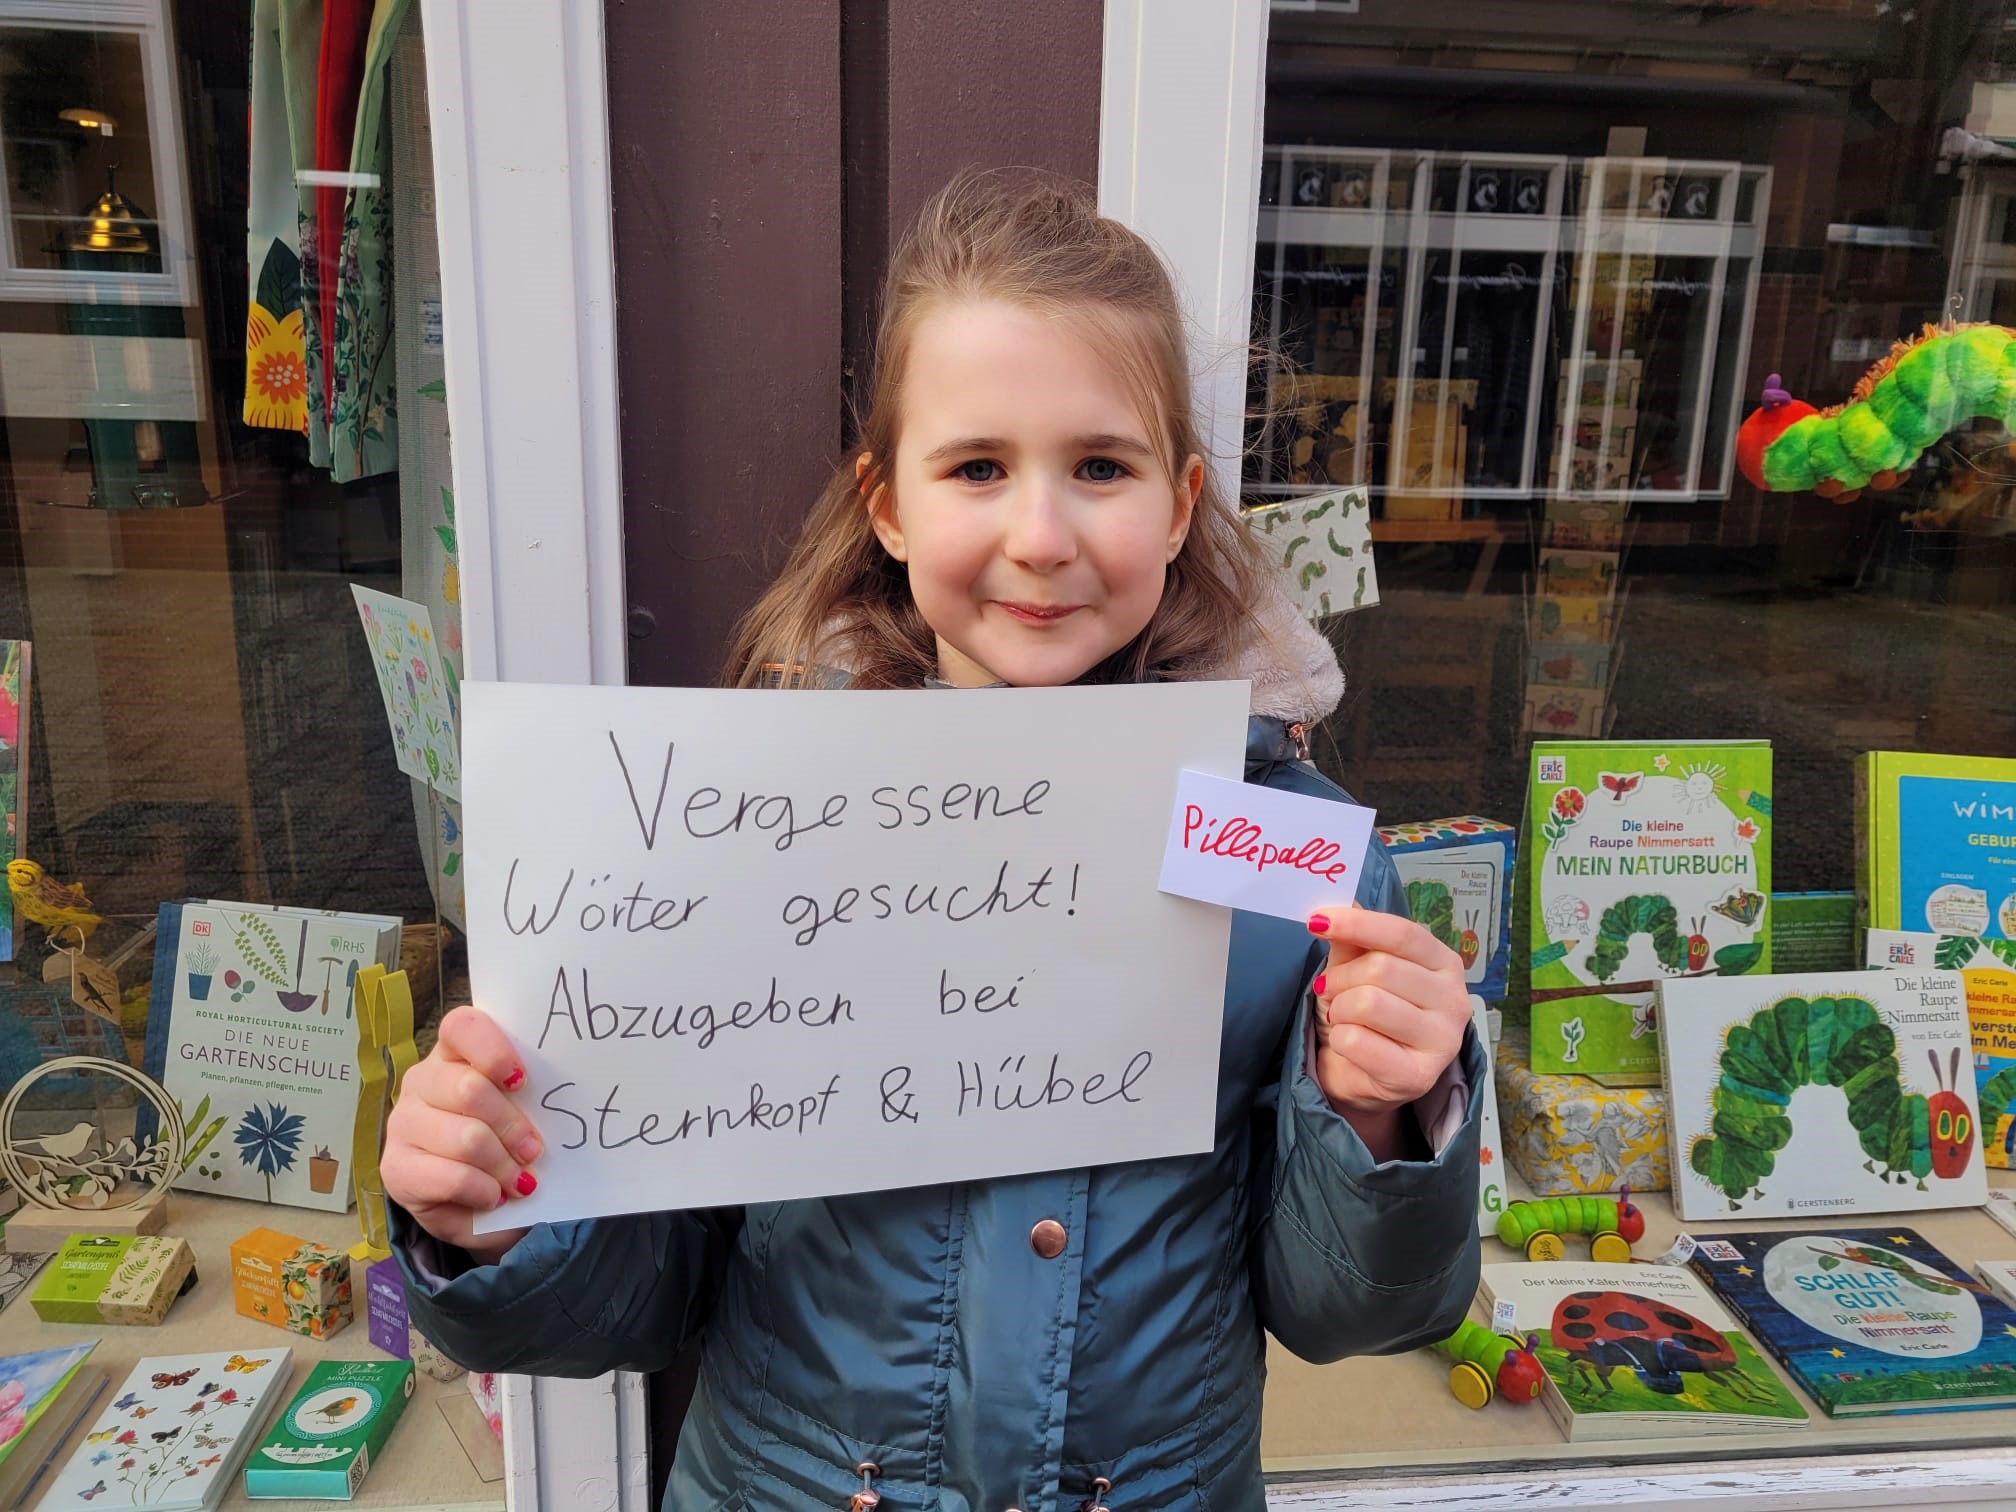 Vergessene
Wörter gesucht!
Abzugeben bei
Sternkopf & Hübel
Pillepalle
DK
RHS
ROYAL HORTICULTURAL SOCIETY
DIE NEUE
GARTENSCHULE
Planen, pflanzen, pflegen, ernten
Gartengruß
MINI PUZZLE
ERIC CARLE
Die kleine
Raupe Nimmersatt
MEIN NATURBUCH
GERSTENBERG
Die kleine
Raupe
Nimmersatt
WIM
GEBUR
ERIC CARLE
Eric Carle
Die kleine
Raupe
Nimmersatt
von Eric Carle
GERSTENBERG
Eric Carle
Der kleine Käfer Immerfrech
ERIC CARLE
SCHLAF
GUT!
Die kleine Raupe
Nimmersatt
Eric Carle